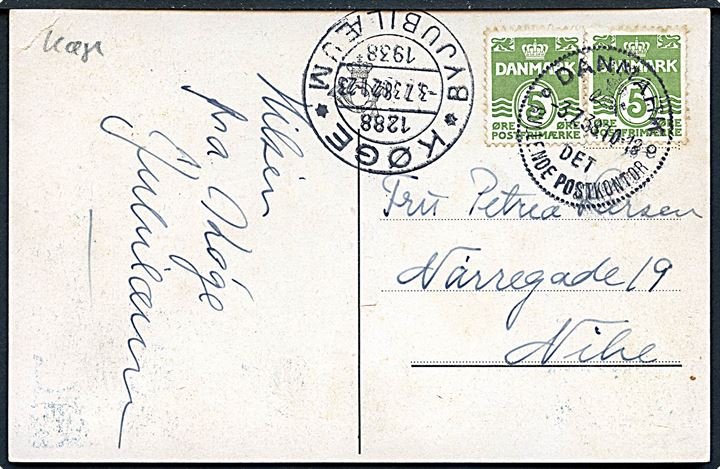 Køge
KØGE * BYJUBILÆUM *
1288
-3.7.38 21-23
1938
DANMARK
5
ØRE
POSTFRIMÆRKE
DANMARK
5
ØRE
POSTFRIMÆRKE
DANMARK
-3.7.38.10
DET
REJSENDE POSTKONTOR
Hilsen
fra Køge
Jubilæum
Fru Petrea
Nørregade 19
Nibe